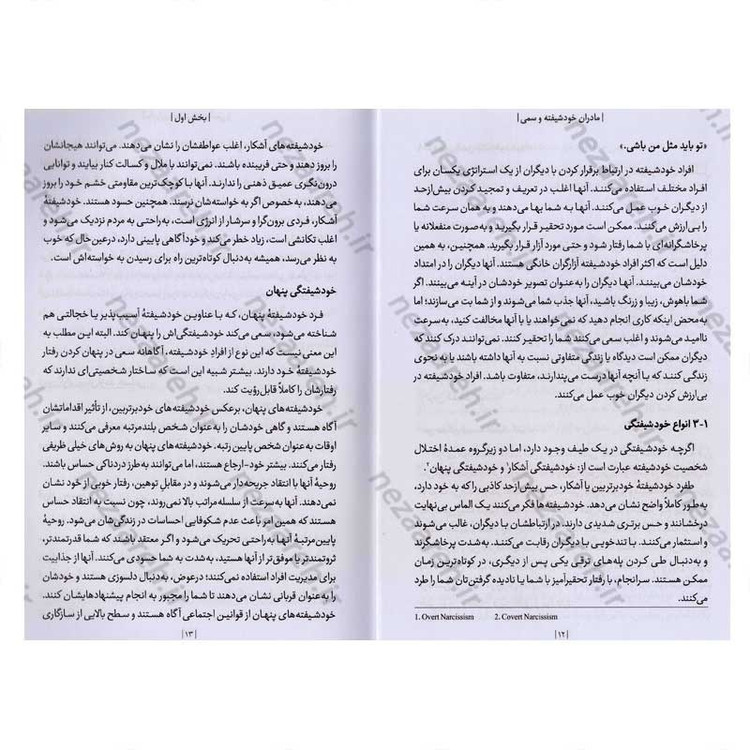 | مادران خودشیفته و سمی |
«تو باید مثل من باشی.»
افراد خودشیفته در ارتباط برقرار کردن با دیگران از یک استراتژی یکسان برای
افراد مختلف استفاده می‌کنند. آنها اغلب در تعریف و تمجید کردن بیش‌ازحد
از دیگران خوب عمل می‌کنند. آنها به شما بها می‌دهند و به همان سرعت شما
را بی‌ارزش می‌کنند. ممکن است مورد تحقیر قرار بگیرید و به‌صورت منفعلانه یا
پرخاشگرانه‌ای با شما رفتار شود و حتی مورد آزار قرار بگیرید. همچنین، به همین
دلیل است که اکثر افراد خودشیفته آزارگران خانگی هستند. آنها دیگران را در امتداد
خودشان می‌بینند. آنها دیگران را به‌عنوان تصویر خودشان در آینه می‌بینند. اگر
شما باهوش، زیبا و زرنگ باشید، آنها جذب شما می‌شوند و از شما بت می‌سازند؛ اما
به‌محض اینکه کاری انجام دهید که نمی‌خواهند یا با آنها مخالفت کنید، به‌سرعت
ناامید می‌شوند و اغلب سعی می‌کنند شما را تحقیر کنند. نمی‌توانند درک کنند که
دیگران ممکن است دیدگاه یا زندگی متفاوتی نسبت به آنها داشته باشند یا به نحوی
زندگی کنند که با آنچه آنها درست می‌پندارند، متفاوت باشد. افراد خودشیفته در
بی‌ارزش کردن دیگران خوب عمل می‌کنند.
۳-۱ انواع خودشیفتگی
اگرچه خودشیفتگی در یک طیف وجود دارد، اما دو زیرگروه عمدهٔ اختلال
شخصیت خودشیفته عبارت است از: خودشیفتگی آشکار۱ و خودشیفتگی پنهان۲.
طفرد خودشیفتهٔ خودبرتربین یا آشکار، حس بیش‌ازحد کاذبی را که به خود دارد،
به‌طور کاملاً واضح نشان می‌دهد. خودشیفته‌ها فکر می‌کنند یک الماس بی‌نهایت
درخشانند و حس برتری شدیدی دارند. در ارتباطشان با دیگران، غالب می‌شوند
و استثمار می‌کنند. با تندخویی با دیگران رقابت می‌کنند. به‌شدت پرخاشگرند
و به‌دنبال طی کردن پله‌های ترقی یکی پس از دیگری، در کوتاه‌ترین زمان
ممکن هستند. سرانجام، با رفتار تحقیرآمیز با شما یا نادیده گرفتن‌تان شما را طرد
می‌کنند.
1. Overt Narcissism 2. Covert Narcissism
| ۱۲ |
| بخش اول |
خودشیفته‌های آشکار، اغلب عواطفشان را نشان می‌دهند. می‌توانند هیجانشان
را بروز دهند و حتی فریبنده باشند. نمی‌توانند با ملال و کسالت کنار بیایند و توانایی
درون‌نگری عمیق ذهنی را ندارند. آنها با کوچک‌ترین مقاومتی خشم خود را بروز
می‌دهند، به خصوص اگر به خواسته‌شان نرسند. همچنین حسود هستند. خودشیفتهٔ
آشکار، فردی برون‌گرا و سرشار از انرژی است، به‌راحتی به مردم نزدیک می‌شود و
اغلب تکانشی است، زیاد خطر می‌کند و خودآگاهی پایینی دارد، درعین‌حال که خوب
به نظر می‌رسد، همیشه به‌دنبال کوتاه‌ترین راه برای رسیدن به خواسته‌اش است.
خودشیفتگی پنهان
فرد خودشیفتهٔ پنهان، که با عناوین خودشیفتهٔ آسیب‌پذیر یا خجالتی هم
شناخته می‌شود، سعی می‌کند خودشیفتگی‌اش را پنهان کند. البته این مطلب به
این معنی نیست که این نوع از افراد خودشیفته، آگاهانه سعی در پنهان کردن رفتار
خودشیفتهٔ خود دارند. بیشتر شبیه این است که ساختار شخصیتی‌ای ندارند که
رفتارشان را کاملاً قابل‌رؤیت کند.
خودشیفته‌های پنهان، برعکس خودشیفته‌های خودبرتربین، از تأثیر اقداماتشان
آگاه هستند و گاهی خودشان را به‌عنوان شخص بلندمرتبه معرفی می‌کنند و سایر
اوقات به‌عنوان شخص پایین رتبه. خودشیفته‌های پنهان به روش‌های خیلی ظریفی
رفتار می‌کنند. بیشتر خود-ارجاع هستند، اما می‌توانند به‌طرز دردناکی حساس باشند.
روحیهٔ آنها با انتقاد جریحه‌دار می‌شود و در مقابل توهین، رفتار خوبی از خود نشان
نمی‌دهند. آنها به سرعت از سلسله‌مراتب بالا نمی‌روند، چون نسبت به انتقاد حساس
هستند که همین امر باعث عدم شکوفایی احساسات در زندگی‌شان می‌شود. روحیهٔ
پایین‌مرتبهٔ آنها به‌راحتی تحریک می‌شود و اگر معتقد باشند که شما قدرتمندتر،
ثروتمندتر یا موفق‌تر از آنها هستید، به‌شدت به شما حسودی می‌کنند. آنها از جذابیت
برای مدیریت افراد استفاده نمی‌کنند؛ درعوض، به‌دنبال دلسوزی هستند و خودشان
را به‌عنوان قربانی نشان می‌دهند تا شما را مجبور به انجام پیشنهادهایشان کنند.
خودشیفته‌های پنهان از قوانین اجتماعی آگاه هستند و سطح بالایی از سازگاری
| ۱۳ |
nezaareh.ir